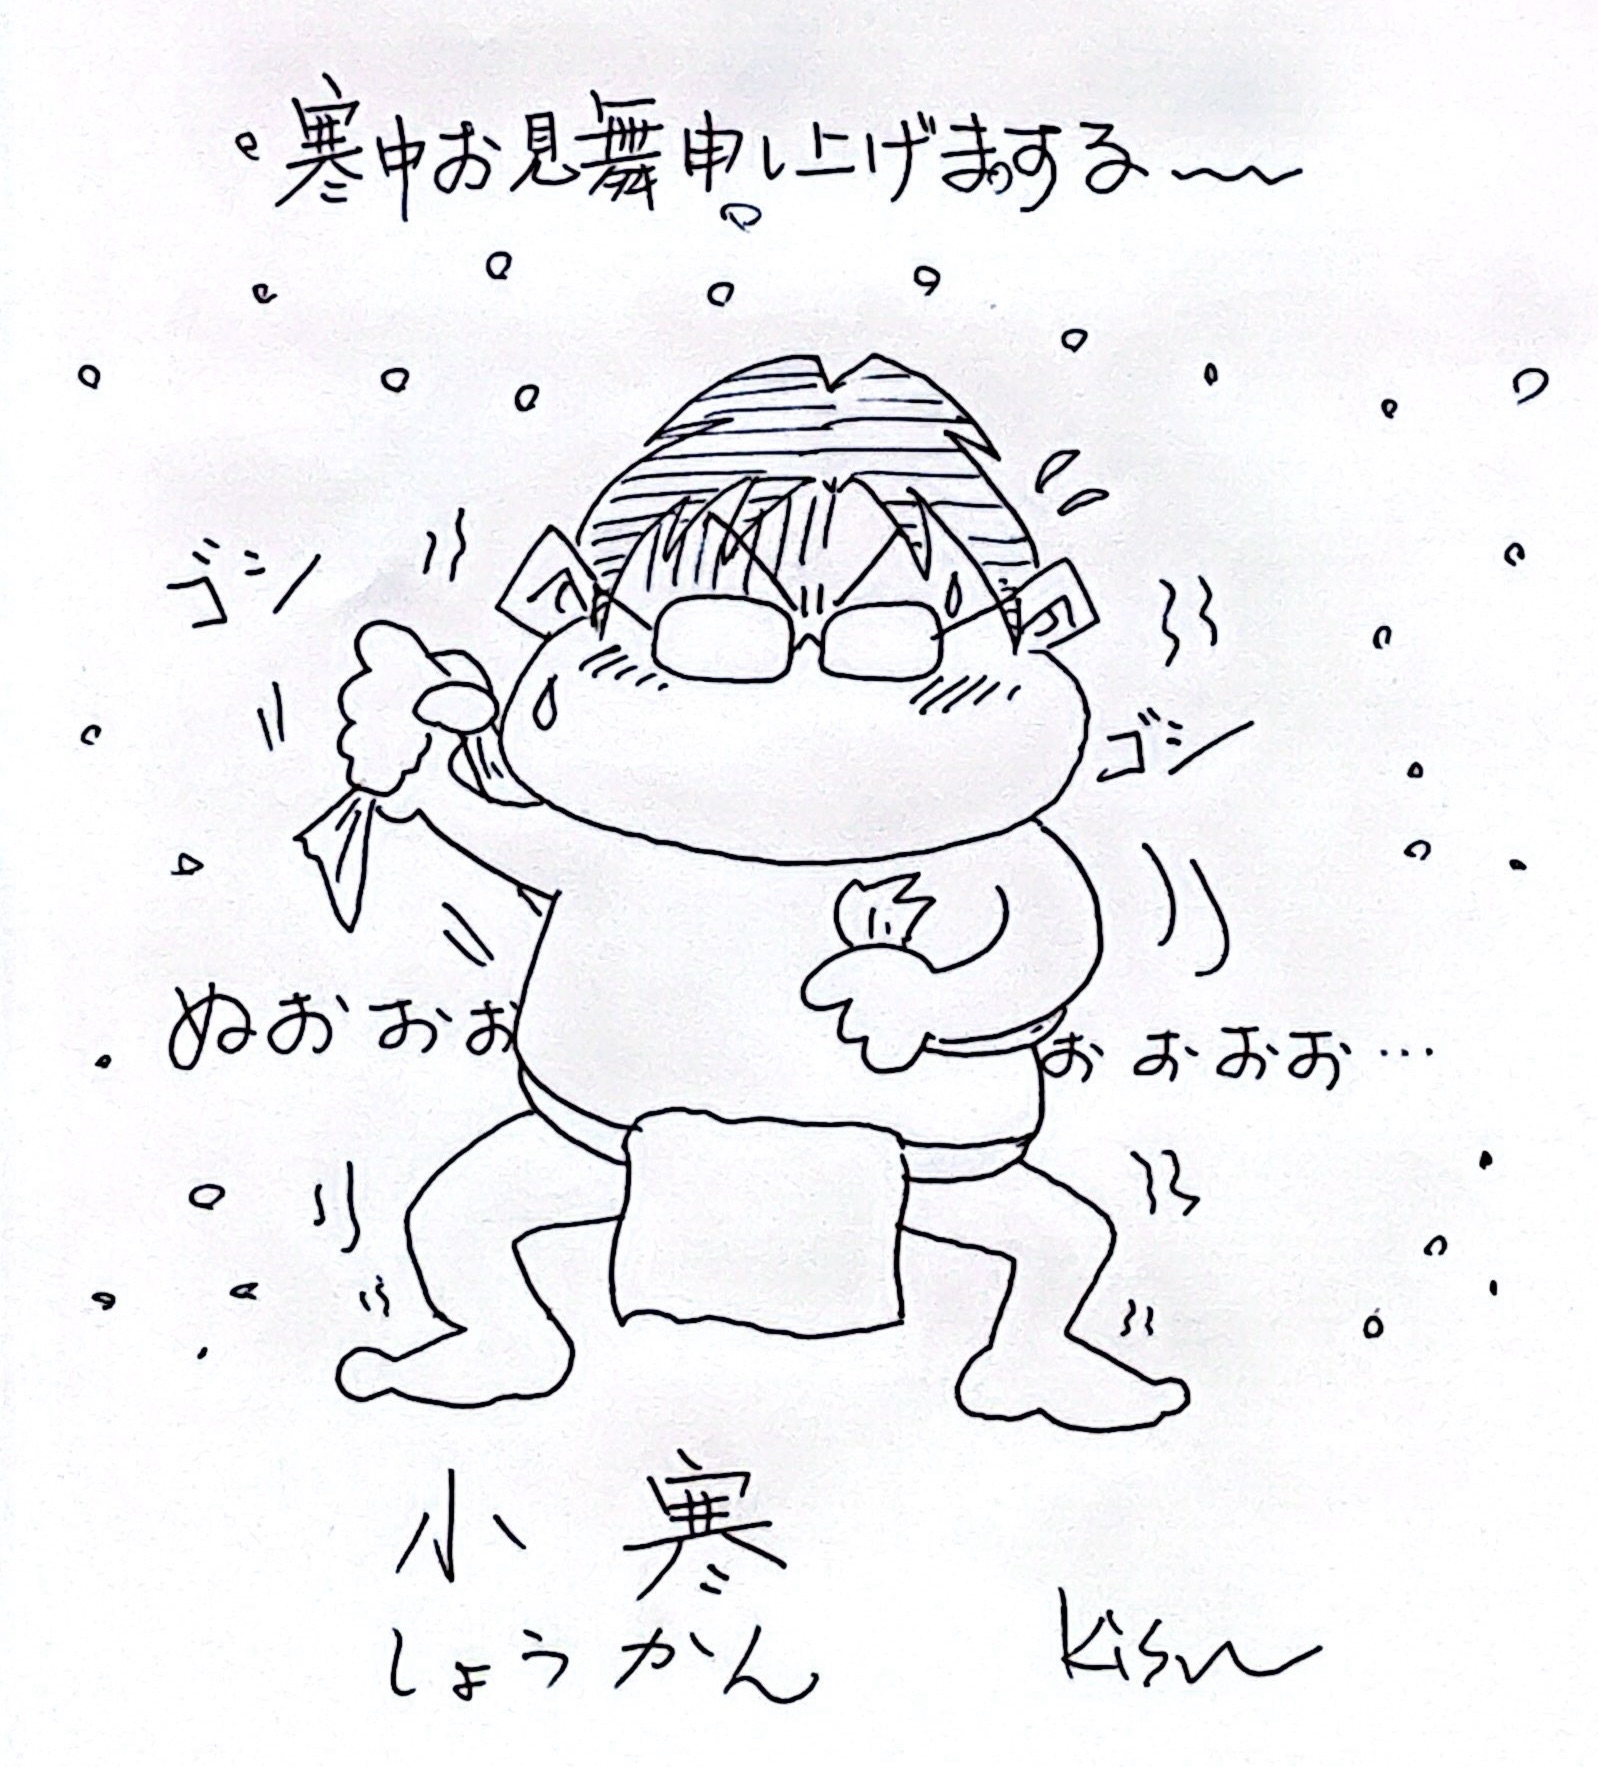 寒中お見舞申し上げまする〜
ゴシ
ゴシ
ぬおおお
おおおお…
小寒
しょうかん